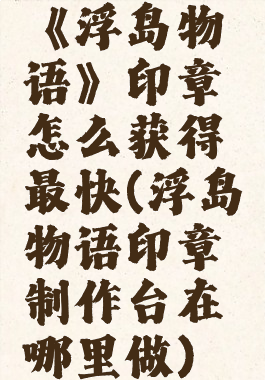 《浮岛物
语》印章
怎么获得
最快(浮岛
物语印章
制作台在
哪里做)